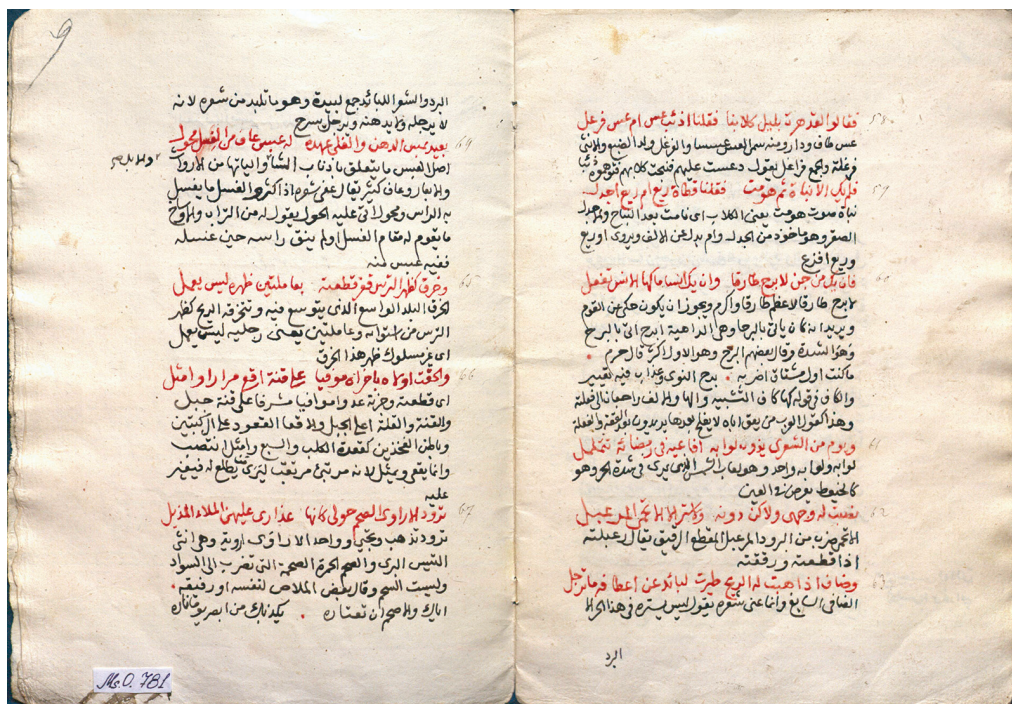 فقالوا لقد هرت بليل كلابنا فقلنا اذئب عس ام عس فرعل
عس طاف ودار ومنه سمى العسس عسسا والفرعل ولد الضبع والانثى
فرعلة والجمع فراعل يقول دعست عليهم فنبحت كلابهم فتوهموه ذئبا
فلم يك الا نباة ثم هومت فقلنا قطاة ريع ام ريع اجدل
نباة صوت هومت يعنى الكلاب اى نامت بعد النباح والاجدل
الصقر وهو ماخوذ من الجدل وام بدل عن الالف ويروى اوريع
وريع افزع
فان يك من جن لابرح طارقا وان يك انسا ماكها الانس تفعل
لابرح طارقا لاعظم طارقا واكرم ويجوز ان يكون حكى عن القوم
ويريد انه كان ياتى بالبرحا وهى الداهية ابرح اتى بالبرح
وهو الشدة وقال بعضهم البرح وهو الاول اكثر قال خرم
ماكنت اول مشتاق اضر به برح النوى وعذاب فيه تغيير
والكاف فى قوله كها كاف التشبيه والها والالف راجعان الى الفعلة
ويوم من الشعرى يذوب لوابه افاعيه فى رمضائه تتململ
لوابه ولعابه واحد وهو لعاب الشمس الذى يرى فى شدة الحر وهو
كالخيوط يعرض فى العين
نصبت له وجهى ولاكن دونه ولا ستر الا الاتحمى المرعبل
الاتحمى ضرب من البرود المرعبل المقطع الرقيق يقال رعبلته
اذا قطعته ورققته
وضاف اذا هبت له الريح طيرت لبائد عن اعطافه ما ترجل
الضافى السابغ وانما عنى شعره يقول ليس يستره فى هذا الحر الا
البرد
البرد والشعر اللبائد جمع لبيدة وهو ما تلبد من شعره لانه
لا يرجله ولا يدهنه ويرجل يسرح
بعيد بمس الدهن والفلى عهده له عبس عاف من الغسل محول
اصل العبس ما يتعلق باذناب الشاء والياتها من الارواث
والابعار وعاف كثير يقال عفى شعره اذا كثر والغسل ما يغسل
به الراس ومحول اتى عليه الحول يقول له من التراب والاوسخ
ما يقوم له مقام الغسل اولم ينق راسه حين غسله
ففيه عبس منه
وخرق كظهر الترس قفر قطعته بعاملتين ظهره ليس يعمل
الخرق البلد الواسع الذى يتوسع فيه وتنخرق الريح كظهر
الترس من استوائه وعاملتين يعنى رجليه ليس يعمل
اى غير مسلوك ظهر هذا الخرق
والحقت اولاه باخراه موفيا على قنة اقعى مرارا وامثل
اى قطعته وجزته عدوا موفيا مشرفا على قنة جبل
والقنة والقلة اعلى الجبل والاقعا القعود على الركبتين
وباطن الفخذين كقعدة الكلب والسبع وامثل انتصب
وانما يقعى ويمثل لانه مرتبئ مرتقب لئن يطلع له فيغير
عليه
ترود الاراوى الصحم حولى كانها عذارى عليهن الملاء المذيل
ترود تذهب وتجئ وواحد الاراوى اروية وهى انثى
التيس البرى والصحم الحمرة الصحمة التى تضرب الى السواد
وليست السحم وقال بعض الملاص لنفسه او رفيقه
اياك والاصحم ان تعتاره